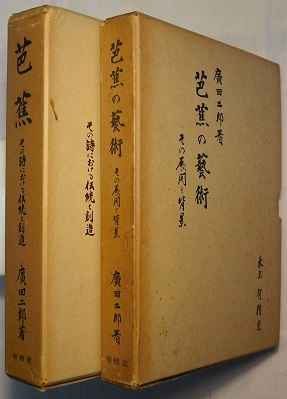 芭蕉
その詩における伝統と創造
廣田二郎著
有精堂
その詩における伝統と創造
芭蕉の藝術
その展開と背景
廣田二郎著
有精堂
廣田二郎著
芭蕉の藝術
その展開と背景
東京 有精堂